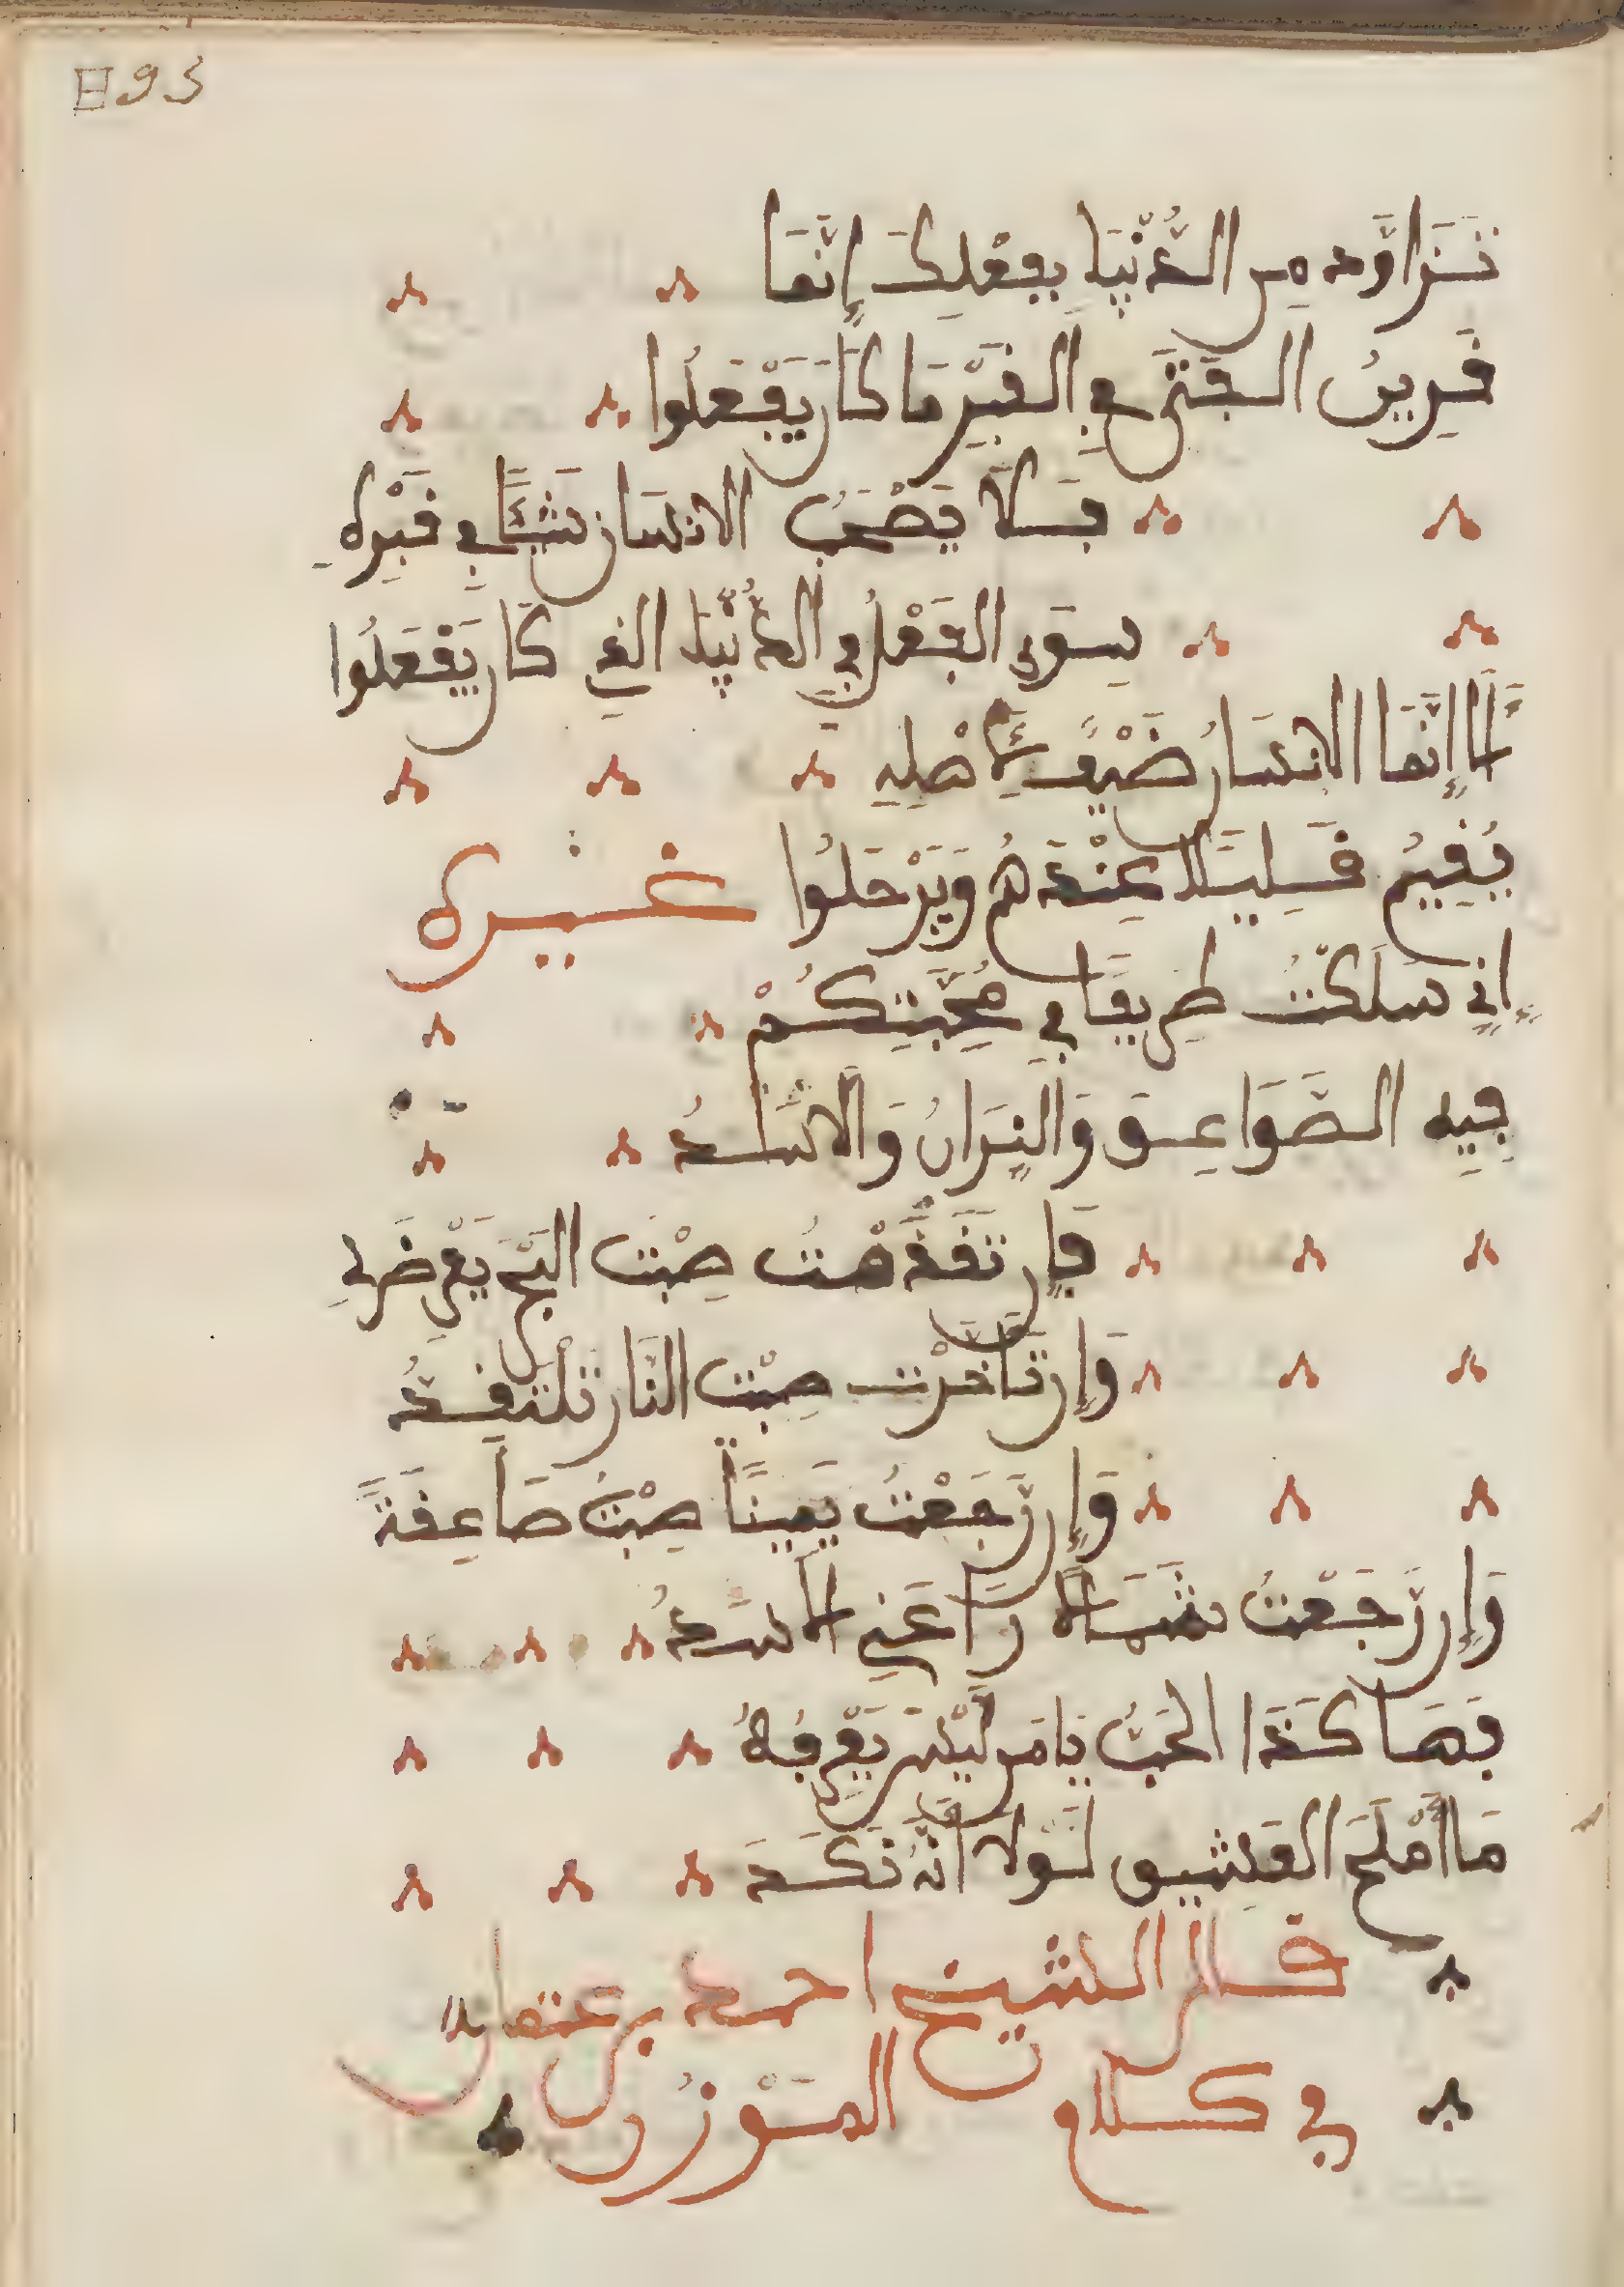 E93
تَزَاوَّد مِن الدُّنْيَا بِفِعْلِكَ إِنَّمَا
قَرِينُ الفَتَى فِي القَبْرِ مَا كَانَ يَفْعَلُوا
فَلَا يَصْحَبُ الانْسَان شَيْئًا فِي قَبْرِهِ
سِوَى الفِعْلُ فِي الدُّنْيَا الذِي كَان يَفْعَلُوا
أَلَا إِنَّمَا الانْسَانُ ضَيْفٌ لِأَهْلِهِ
يُقِيمُ قَلِيلًا عِنْدَهُم وَيَرْحَلُوا غيره
إِنِّي سَلَكْتُ طَرِيقًا فِي مَحَبَّتِكُمْ
فِيهِ الصَّوَاعِقُ وَالنِّيرَانُ وَالأسَدُ
فَإِن تَقَدَّمْتُ صِبْتُ البَحْ يَعْرِضَ لِي
وَإِن تَأَخَّرْتُ صِبْتُ النَّار تَلْتَقِدُ
وَإِن رَّجَعْتُ يَمِينًا صِبْتُ صَاعِقَةً
وَإِن رَّجَعْتُ شَمَالًا رَاعَنِي الأسَدُ
فَهَاكَذَا الحُبُّ يَا مَن لَيْسَ يَعْرِفُهُ
مَا أَمْلَحَ العِشِيق لَوْلَا أَنَّهُ نَكَدَ
قال الشيخ احمد بن عنقال
في كلام المَوْزُون